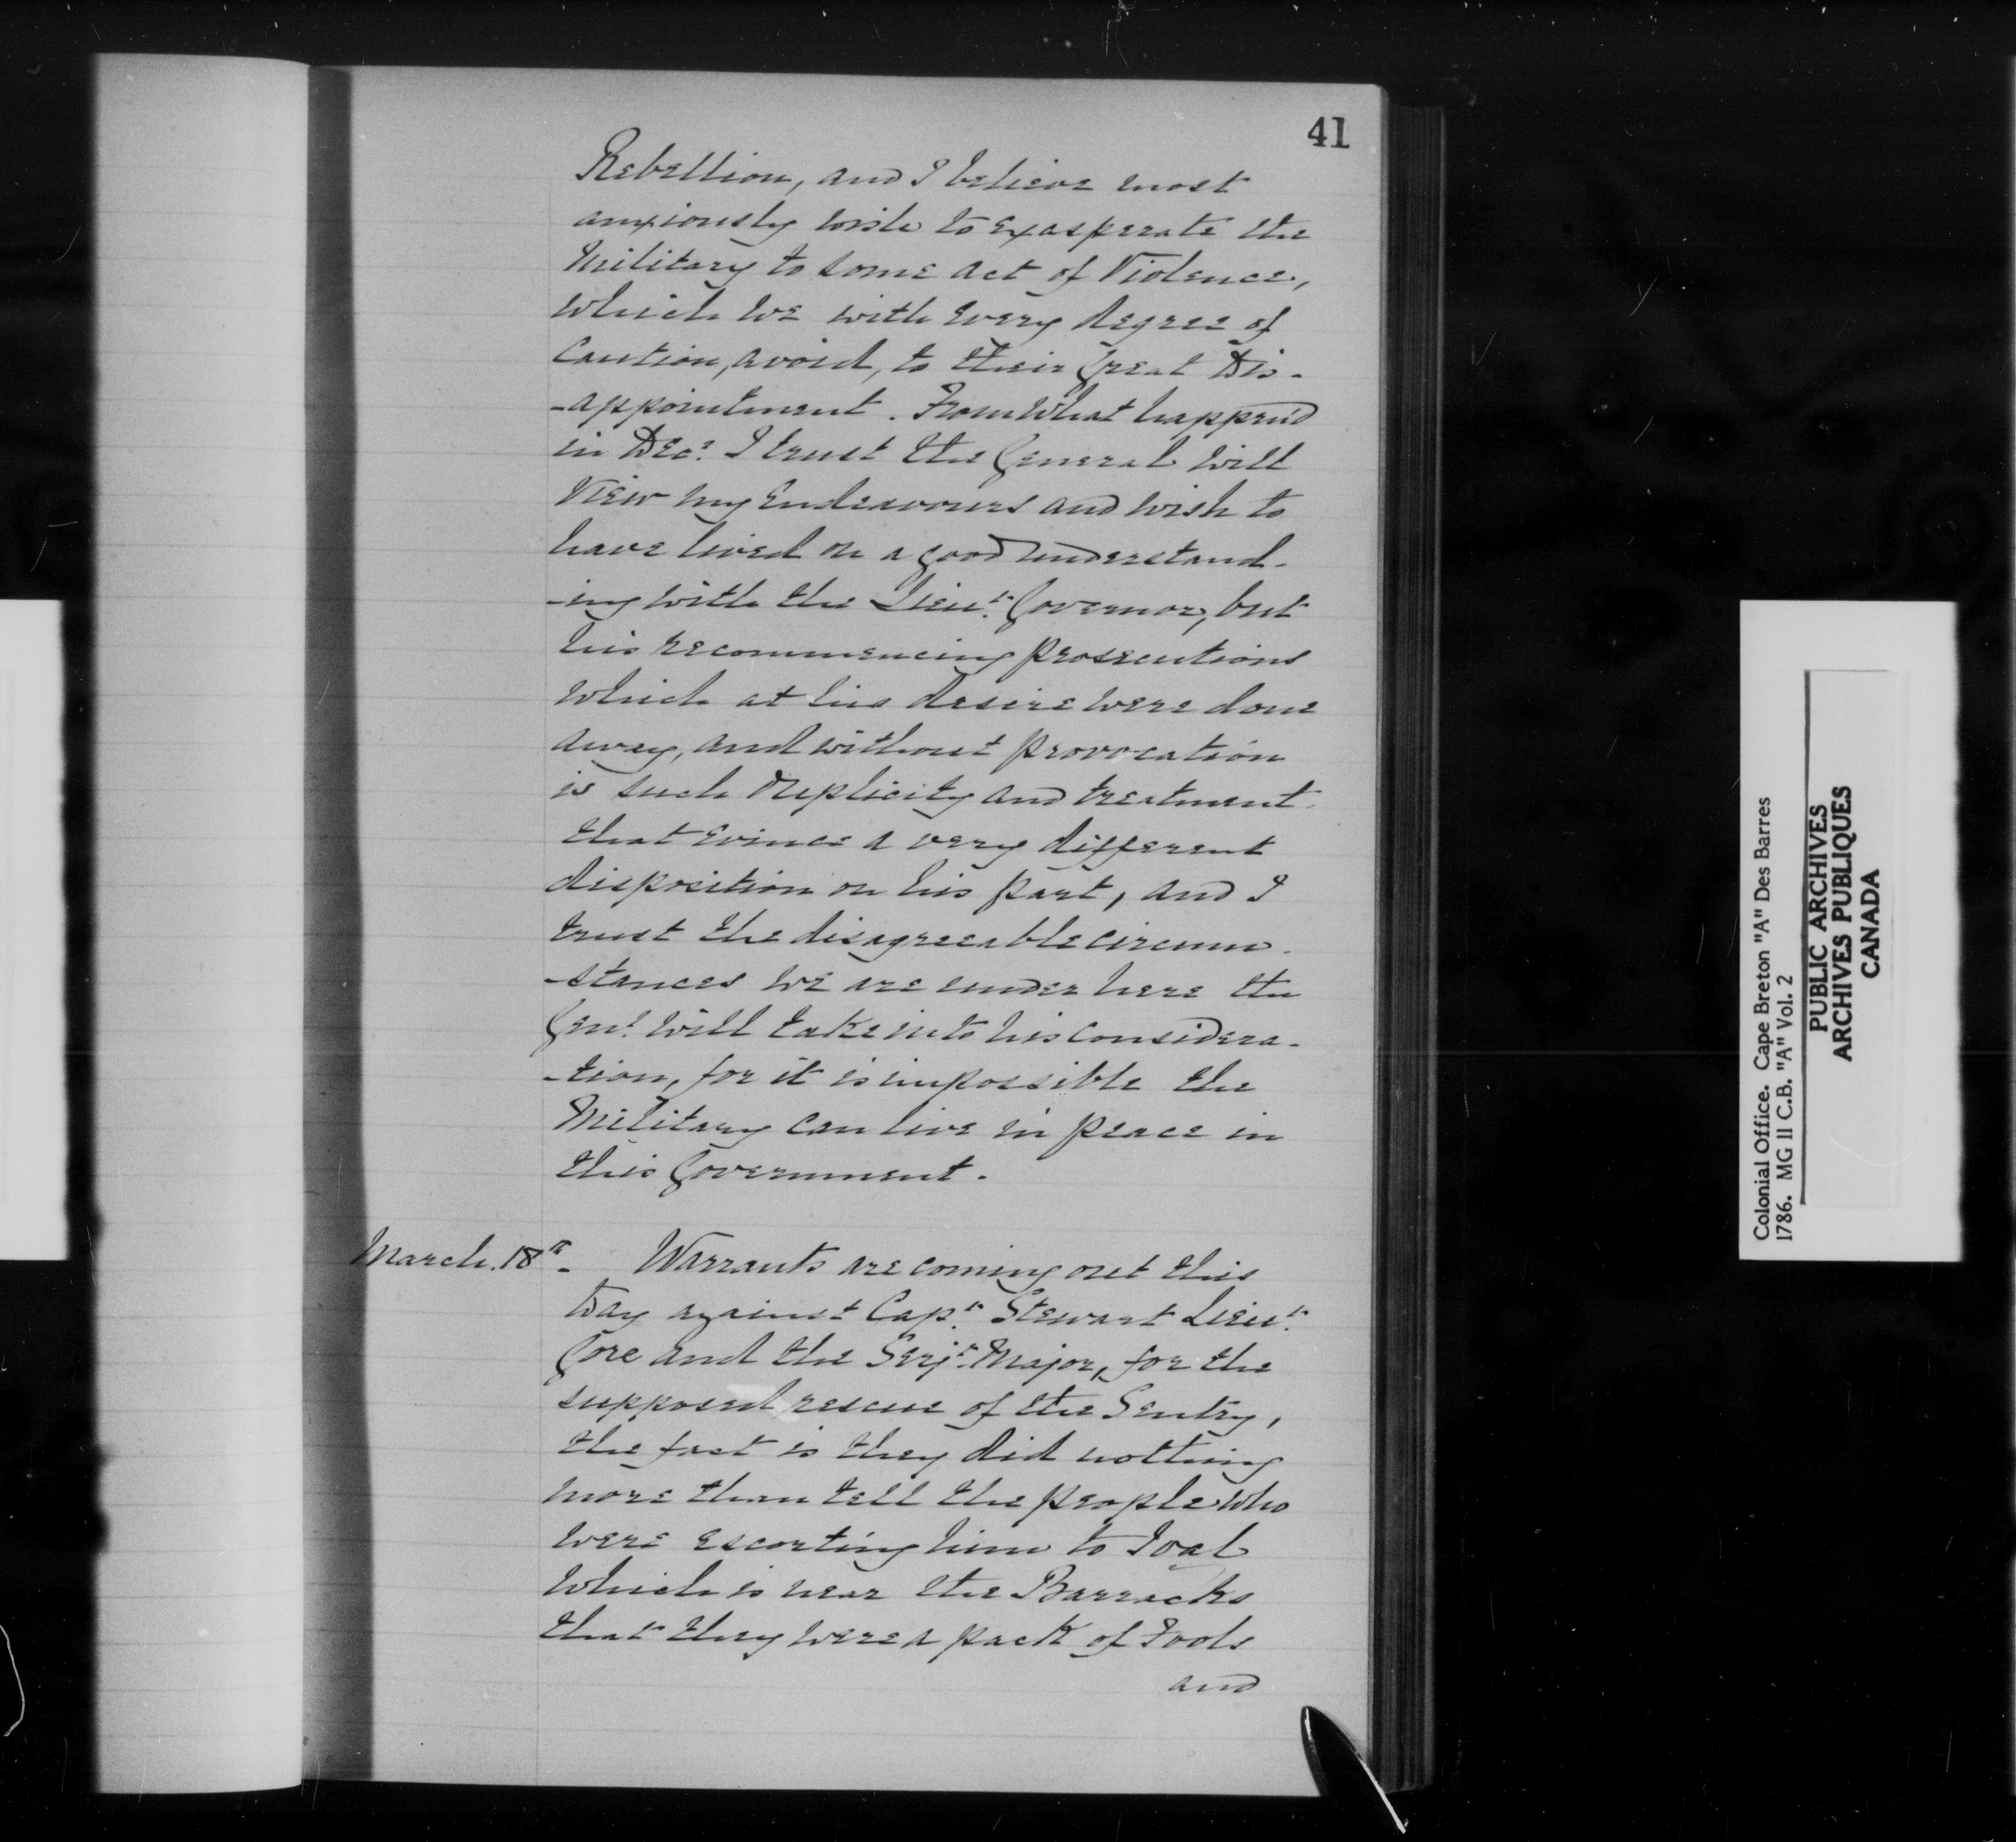 41
Rebellion, and I believe most
anxiously wish to exasperate the
Military to some act of Violence,
which we with every degree of
Caution, avoid, to their Great Dis-
-appointment. From What happen'd
in Decr. I trust the General will
View my Endeavours and wish to
have lived on a good understand-
-ing with the Lieut. Governor, but
his recommencing prosecutions
which at his desire were done
away, and without provocation
is such duplicity and treatment
that evince a very different
disposition on his part, and I
trust the disagreeable circum-
-stances we are under here the
Genl. will take into his considera-
-tion, for it is impossible the
Military can live in peace in
this Government.
March. 18th - Warrants are coming out this
Day against Capt. Stewart Lieut.
Gore and the Serjt. Major, for the
supposed rescue of the Sentry,
the fact is they did nothing
more than tell the people who
were escorting him to Goal
which is near the Barracks
that they were a pack of Fools
and
Colonial Office. Cape Breton "A" Des Barres
1786. MG 11 C.B. "A" Vol. 2
PUBLIC ARCHIVES
ARCHIVES PUBLIQUES
CANADA